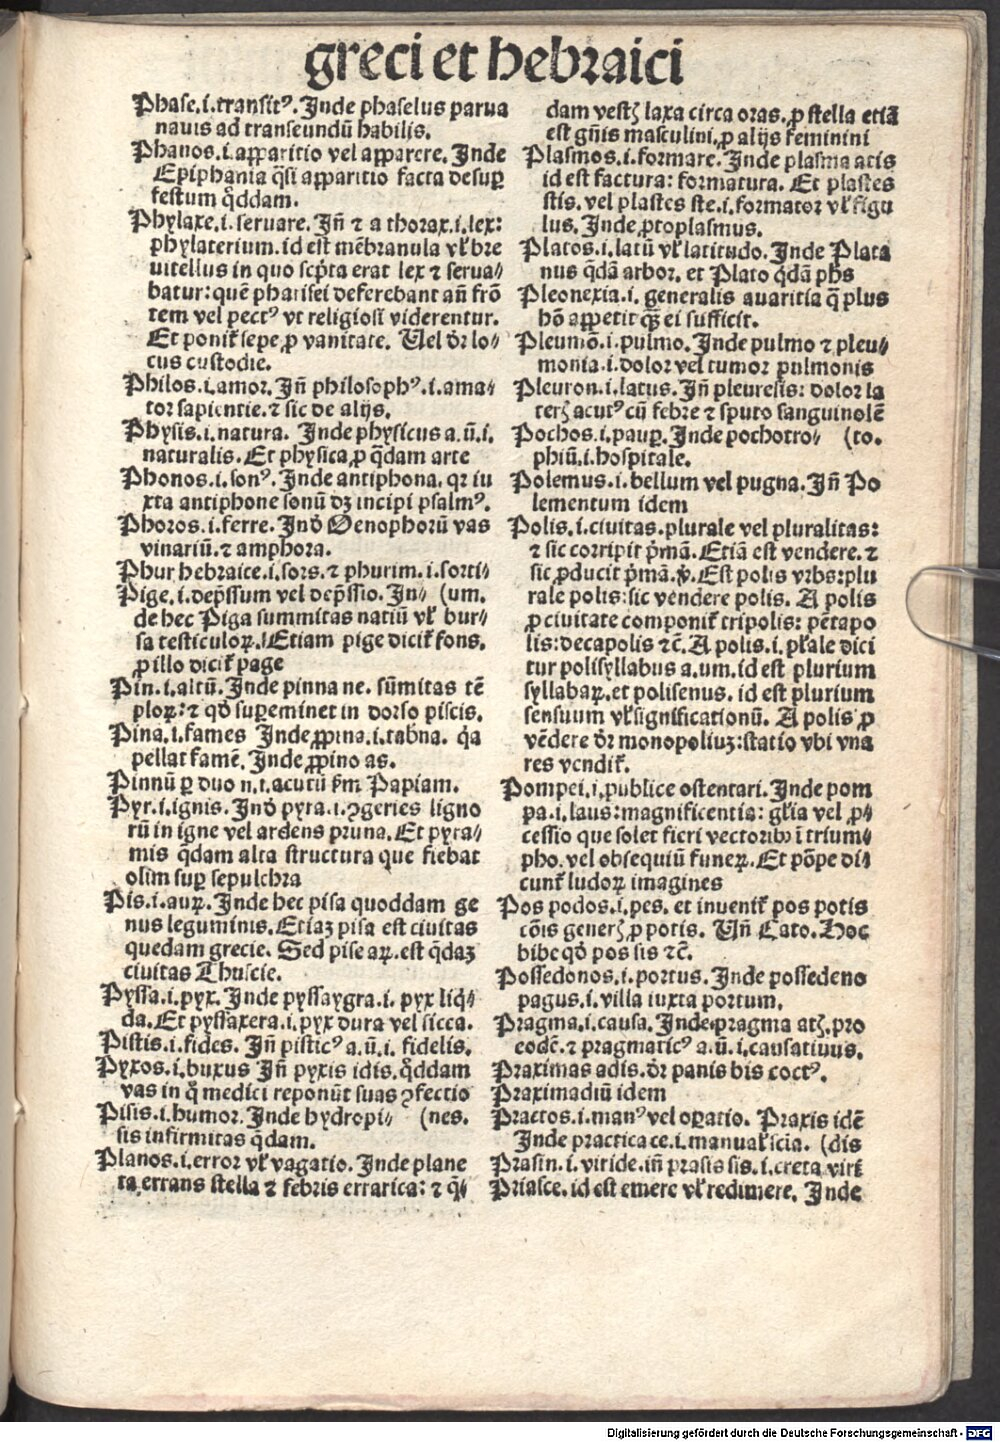 greci et hebraici
Phase.i.transitꝰ. Inde phaselus parua
nauis ad transeundū habilis.
Phanos.i.apparitio vel apparere. Inde
Epiphania q̄si apparitio facta desuꝑ
festum qͦddam.
Phylaxe.i.seruare. Jñ ⁊ a thorax.i.lex:
phylaterium.id est mēbranula vl̓ bre
uitellus in quo scp̄ta erat lex ⁊ serua⸗
batur: quē pharisei deferebant añ frō
tem vel pectꝰ vt religiosi viderentur.
Et ponit̓ sepe ꝓ vanitate. Vel dr̄ lo⸗
cus custodie.
Philos.i.amor. Jñ philosophꝰ.i.ama⸗
tor sapientie.⁊ sic de alijs.
Physis.i.natura. Inde physicus a.ū.i.
naturalis. Et physica ꝓ q̄dam arte
Phonos.i.sonꝰ. Inde antiphona. qr iu
xta antiphone sonū dꝫ incipi psalmꝰ.
Phoros.i.ferre. Indͤ Oenophorū vas
vinariū.⁊ amphora.
Phur hebraice.i.sors.⁊ phurim.i.sorti⸗
Pige.i.dep̄ssum vel dep̄ssio. In⸗ (um.
de hec Piga summitas natiū vl̓ bur⸗
sa testiculoꝝ. Etiam pige dicit̓ fons.
ꝓ illo dicit̓ page
Pin.i.altū. Inde pinna ne. sūmitas tē
ploꝝ: ⁊ qd̓ suꝑeminet in dorso piscis.
Pina.i.fames Inde ꝓpina.i.tab̓na. q̓a
pellat famē. Inde ꝓpino as.
Pinnū ꝑ duo n.i.acutū ẜm Papiam.
Pyr.i.ignis. Indͤ pyra.i.ꝯgeries ligno
rū in igne vel ardens pruna. Et pyra⸗
mis q̄dam alta structura que fiebat
olim suꝑ sepulchra
Pis.i.auꝝ. Inde hec pisa quoddam ge
nus leguminis. Etiaꝫ pisa est ciuitas
quedam grecie. Sed pise aꝝ. est q̄daꝫ
ciuitas Thuscie.
Pyssa.i.pyx. Inde pyssaygra.i. pyx liq̓⸗
da. Et pyssaxera.i.pyx dura vel sicca.
Pistis.i.fides. Jñ pisticꝰ a.ū.i. fidelis.
Pyxos.i.buxus Jñ pyxis idis. qͦddam
vas in qͦ medici reponūt suas ꝯfectio
Pisis.i.humor. Inde hydropi⸗ (nes.
sis infirmitas q̄dam.
Planos.i.error vl̓ vagatio. Inde plane
ta errans stella ⁊ febris erratica: ⁊ q̄⸗
dam vestꝭ laxa circa oras. ꝓ stella etiā
est gñis masculini. ꝓ alijs feminini
Plasmos.i.formare. Inde plasma atis
id est factura: formatura. Et plastes
stis. vel plastes ste.i.formator vl̓ figu
lus. Inde ꝓtoplasmus.
Platos.i.latū vl̓ latitudo. Inde Plata
nus q̄dā arbor. et Plato q̄dā phs
Pleonexia.i. generalis auaritia q̄ plus
hō appetit qꝫ ei sufficit.
Pleumō.i.pulmo. Inde pulmo ⁊ pleu⸗
monia.i.dolor vel tumor pulmonis
Pleuron.i.latus. Jñ pleuresis: dolor la
terꝭ acutꝰ cū febre ⁊ sputo sanguinolē
Pochos.i.pauꝑ. Inde pochotro⸗ (to.
phiū.i.hospitale.
Polemus.i.bellum vel pugna. Jñ Po
lementum idem
Polis.i.ciuitas.plurale vel pluralitas:
⁊ sic corripit p̓mā. Etiā est vendere. ⁊
sic ꝓducit p̓mā. v̓. Est polis vrbs: plu
rale polis: sic vendere polis. A polis
ꝓ ciuitate componit̓ tripolis: pētapo
lis: decapolis ⁊c̄. A polis.i. pl̓ale dici
tur polisyllabus a.um. id est plurium
syllabaꝝ. et polisenus. id est plurium
sensuum vl̓ significationū. A polis ꝓ
vēdere dr̄ monopoliuꝫ: statio vbi vna
res vendit̓.
Pompei.i.publice ostentari. Inde pom
pa.i.laus: magnificentia: gl̓ia vel ꝓ⸗
cessio que solet fieri vectoribꝰ ī trium⸗
pho. vel obsequiū funeꝝ. Et pōpe di⸗
cunt̓ ludoꝝ imagines
Pos podos.i.pes. et inuenit̓ pos potis
cōis generꝭ ꝓ potis. Vñ Cato. Hoc
bibe qd̓ possis ⁊c̄.
Possedonos.i.portus. Inde possedeno
pagus.i.villa iuxta portum.
Pragma.i.causa. Inde pragma atꝭ. pro
eodē.⁊ pragmaticꝰ a.ū.i.causatiuus.
Praximas adis. dr̄ panis bis coctꝰ.
Praximadiū idem
Practos.i.manꝰ vel oꝑatio. Praxis idē
Inde practica ce.i.manual̓ scīa. (dis
Prasin.i.viride. iñ prasis sis.i.creta viri
Priasce. id est emere vl̓ redimere. Inde
Digitalisierung gefördert durch die Deutsche Forschungsgemeinschaft - DFG